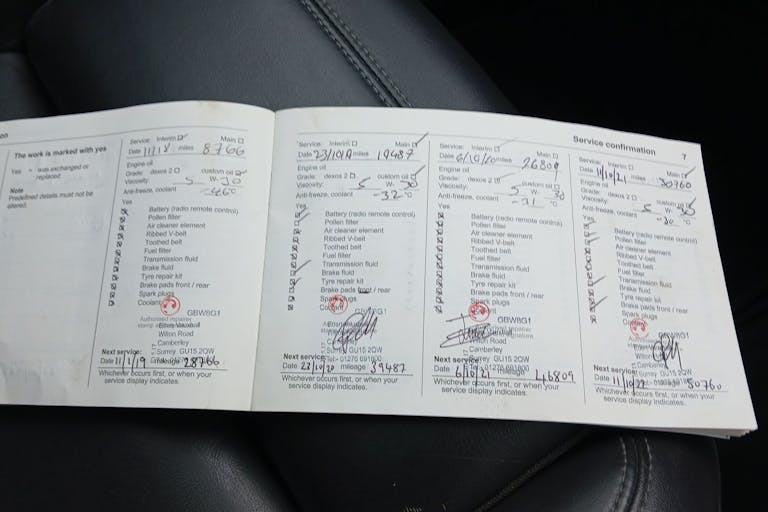 on
The work is marked with yes
Yes = was exchanged or
replaced
Note
Predefined details must not be
altered.
Service: Interim ☑ Main ☐
Date 11/1/18 miles 8766
Engine oil
Grade: dexos 2 ☐ custom oil ☑
Viscosity: 5 W- 30
Anti-freeze, coolant °C
Yes
Battery (radio remote control)
Pollen filter
Air cleaner element
Ribbed V-belt
Toothed belt
Fuel filter
Transmission fluid
Brake fluid
Tyre repair kit
Brake pads front / rear
Spark plugs
Coolant
GBW8G1
Authorised repairer
Wilton Road
Camberley
Surrey GU15 2QW
Next service:
Date 11/1/19 mileage 28766
Whichever occurs first, or when your
service display indicates.
Service: Interim ☐ Main ☑
Date 23/10/19 miles 19487
Engine oil
Grade: dexos 2 ☐ custom oil ☑
Viscosity: 5 W- 30
Anti-freeze, coolant -32 °C
Yes
Battery (radio remote control)
Pollen filter
Air cleaner element
Ribbed V-belt
Toothed belt
Fuel filter
Transmission fluid
Brake fluid
Tyre repair kit
Brake pads front / rear
Spark plugs
Coolant
GBW8G1
Wilton Road
Camberley
Surrey GU15 2QW
Next service:
Date 23/10/20 mileage 39487
Whichever occurs first, or when your
service display indicates.
Service: Interim ☑ Main ☐
Date 6/10/20 miles 26809
Engine oil
Grade: dexos 2 ☐ custom oil ☑
Viscosity: 5 W- 30
Anti-freeze, coolant -31 °C
Yes
Battery (radio remote control)
Pollen filter
Air cleaner element
Ribbed V-belt
Toothed belt
Fuel filter
Transmission fluid
Brake fluid
Tyre repair kit
Brake pads front / rear
Spark plugs
Coolant
GBW8G1
Wilton Road
Camberley
Surrey GU15 2QW
Next service:
Date 6/10/21 mileage 46809
Whichever occurs first, or when your
service display indicates.
Service confirmation 7
Service: Interim ☐ Main ☑
Date 11/10/21 miles 30760
Engine oil
Grade: dexos 2 ☐ custom oil ☑
Viscosity: 5 W- 30
Anti-freeze, coolant -30 °C
Yes
Battery (radio remote control)
Pollen filter
Air cleaner element
Ribbed V-belt
Toothed belt
Fuel filter
Transmission fluid
Brake fluid
Tyre repair kit
Brake pads front / rear
Spark plugs
Coolant
GBW8G1
Wilton Road
Camberley
Surrey GU15 2QW
Next service:
Date 11/10/22 mileage 50760
Whichever occurs first, or when your
service display indicates.